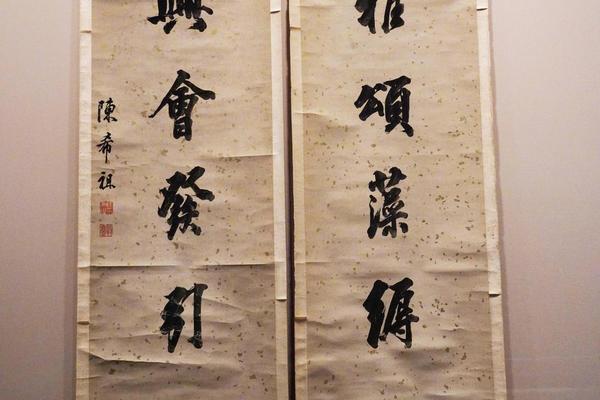 雅頌藻縟
興會發引
陳希祖